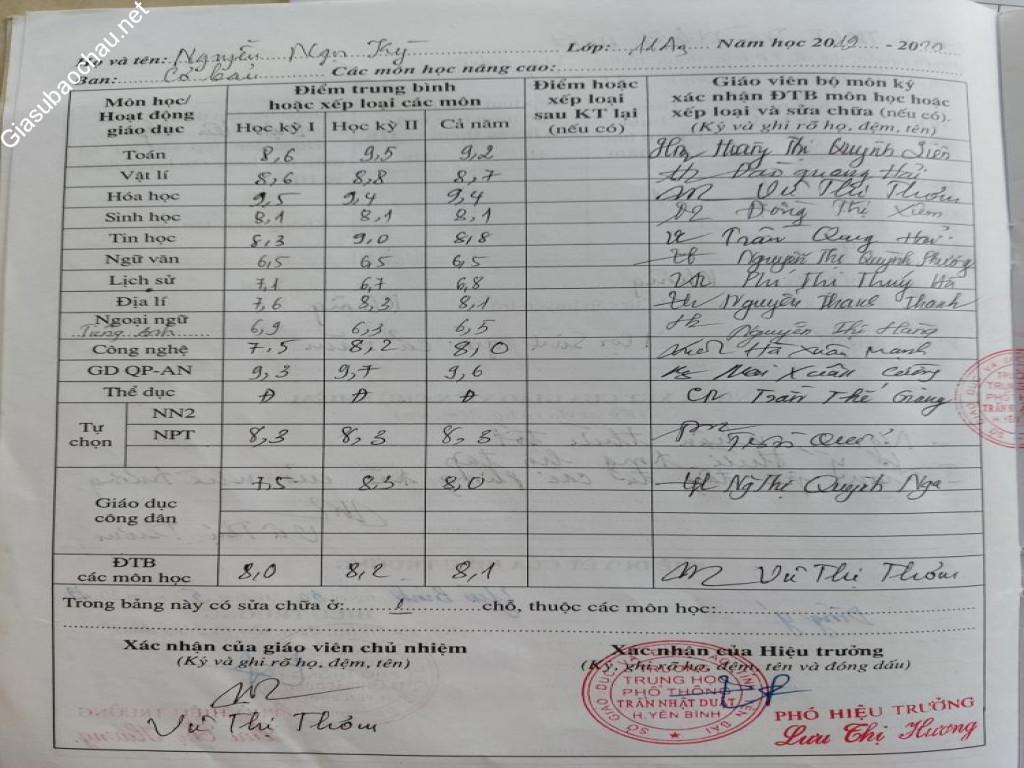 Giasubaochau.net
Họ và tên: Nguyễn Ngọc Kỳ Lớp: 11A2 Năm học 2019 - 2020
Ban: Cơ bản Các môn học nâng cao:
Môn học/ Hoạt động giáo dục
Điểm trung bình hoặc xếp loại các môn
Học kỳ I Học kỳ II Cả năm
Điểm hoặc xếp loại sau KT lại (nếu có)
Giáo viên bộ môn ký xác nhận ĐTB môn học hoặc xếp loại và sửa chữa (nếu có).
(Ký và ghi rõ họ, đệm, tên)
Toán 8,6 9,5 9,2 Hoàng Thị Quỳnh Liên
Vật lí 8,6 8,8 8,7 Đào Quang Hải
Hóa học 9,5 9,4 9,4 Vũ Thị Thơm
Sinh học 8,1 8,1 8,1 Đồng Thị Xiêm
Tin học 8,3 9,0 8,8 Trần Quang
Ngữ văn 6,5 6,5 6,5 Nguyễn Thị Quỳnh Phương
Lịch sử 7,1 6,7 6,8 Phí Thị Thúy Hà
Địa lí 7,6 8,3 8,1 Nguyễn Thanh Thanh
Ngoại ngữ 6,9 6,3 6,5 Nguyễn Thị Hằng
Tiếng Anh
Công nghệ 7,5 8,2 8,0 Hà Xuân Mạnh
GD QP-AN 9,3 9,7 9,6 Mai Xuân Cường
Thể dục Đ Đ Đ Trần Thế Giang
Tự chọn
NN2
NPT 8,3 8,3 8,3
Giáo dục công dân 7,5 8,3 8,0 Ng Thị Quỳnh Nga
ĐTB các môn học 8,0 8,2 8,1 Vũ Thị Thơm
Trong bảng này có sửa chữa ở: chỗ, thuộc các môn học:
Xác nhận của giáo viên chủ nhiệm
(Ký và ghi rõ họ, đệm, tên)
Vũ Thị Thơm
Xác nhận của Hiệu trưởng
(Ký, ghi rõ họ, đệm, tên và đóng dấu)
TRUNG HỌC
PHỔ THÔNG
TRẦN NHẬT DUẬT
H.YÊN BÌNH
PHÓ HIỆU TRƯỞNG
Lưu Thị Hương